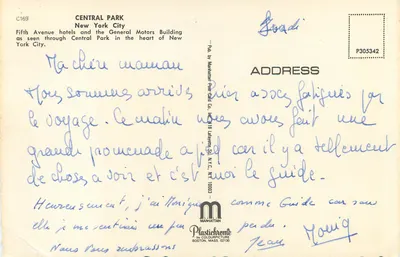 C169
CENTRAL PARK
New York City
Fifth Avenue hotels and the General Motors Building
as seen through Central Park in the heart of New
York City.
Jeudi
P305342
ADDRESS
Ma chère maman
Nous sommes arrivés hier assez fatigués par
le voyage. Ce matin nous avons fait une
grande promenade a pied car il y a tellement
de choses a voir et c'est moi le guide.
Heureusement, j'ai Monique comme Guide car sans
elle je me sentirais un peu perdu.
Nous vous embrassons
Jean
Moniq
MANHATTAN
Plastichrome
BY COLOURPICTURE
BOSTON, MASS. 02130